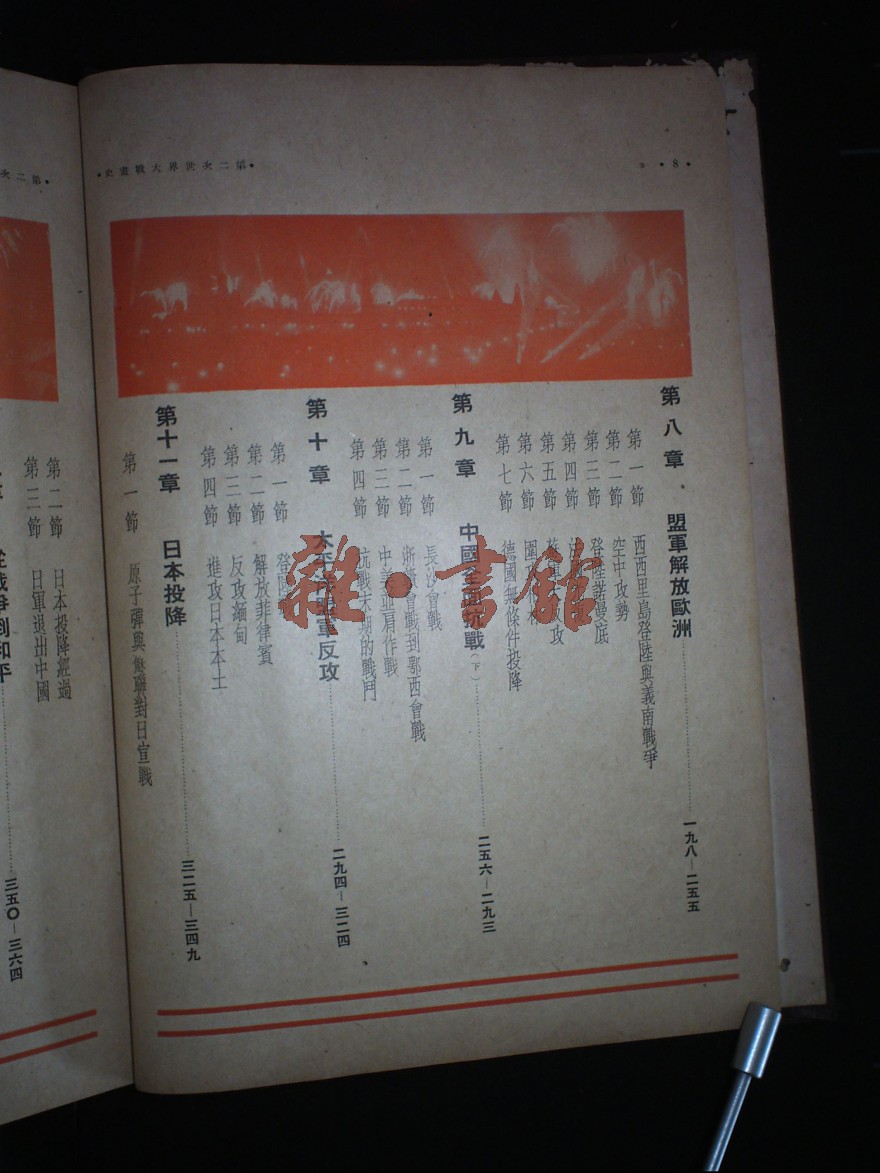 •第二次世界大戰畫史•
•8•
第八章 盟軍解放歐洲 一九八—二五五
第一節 西西里島登陸與義南戰爭
第二節 空中攻勢
第三節 登陸諾曼底
第四節
第五節 攻
第六節 圍
第七節 德國無條件投降
第九章 中國全面抗戰(下) 二五六—二九三
第一節 長沙會戰
第二節 浙贛會戰到鄂西會戰
第三節 中美並肩作戰
第四節 抗戰末期的戰鬥
第十章 太平洋盟軍反攻 二九四—三二四
第一節 登陸
第二節 解放菲律賓
第三節 反攻緬甸
第四節 進攻日本本土
第十一章 日本投降 三二五—三四九
第一節 原子彈與蘇聯對日宣戰
第二節 日本投降經過
第三節 日軍退出中國
從戰爭到和平 三五〇—三六四
第二次
雜•書館